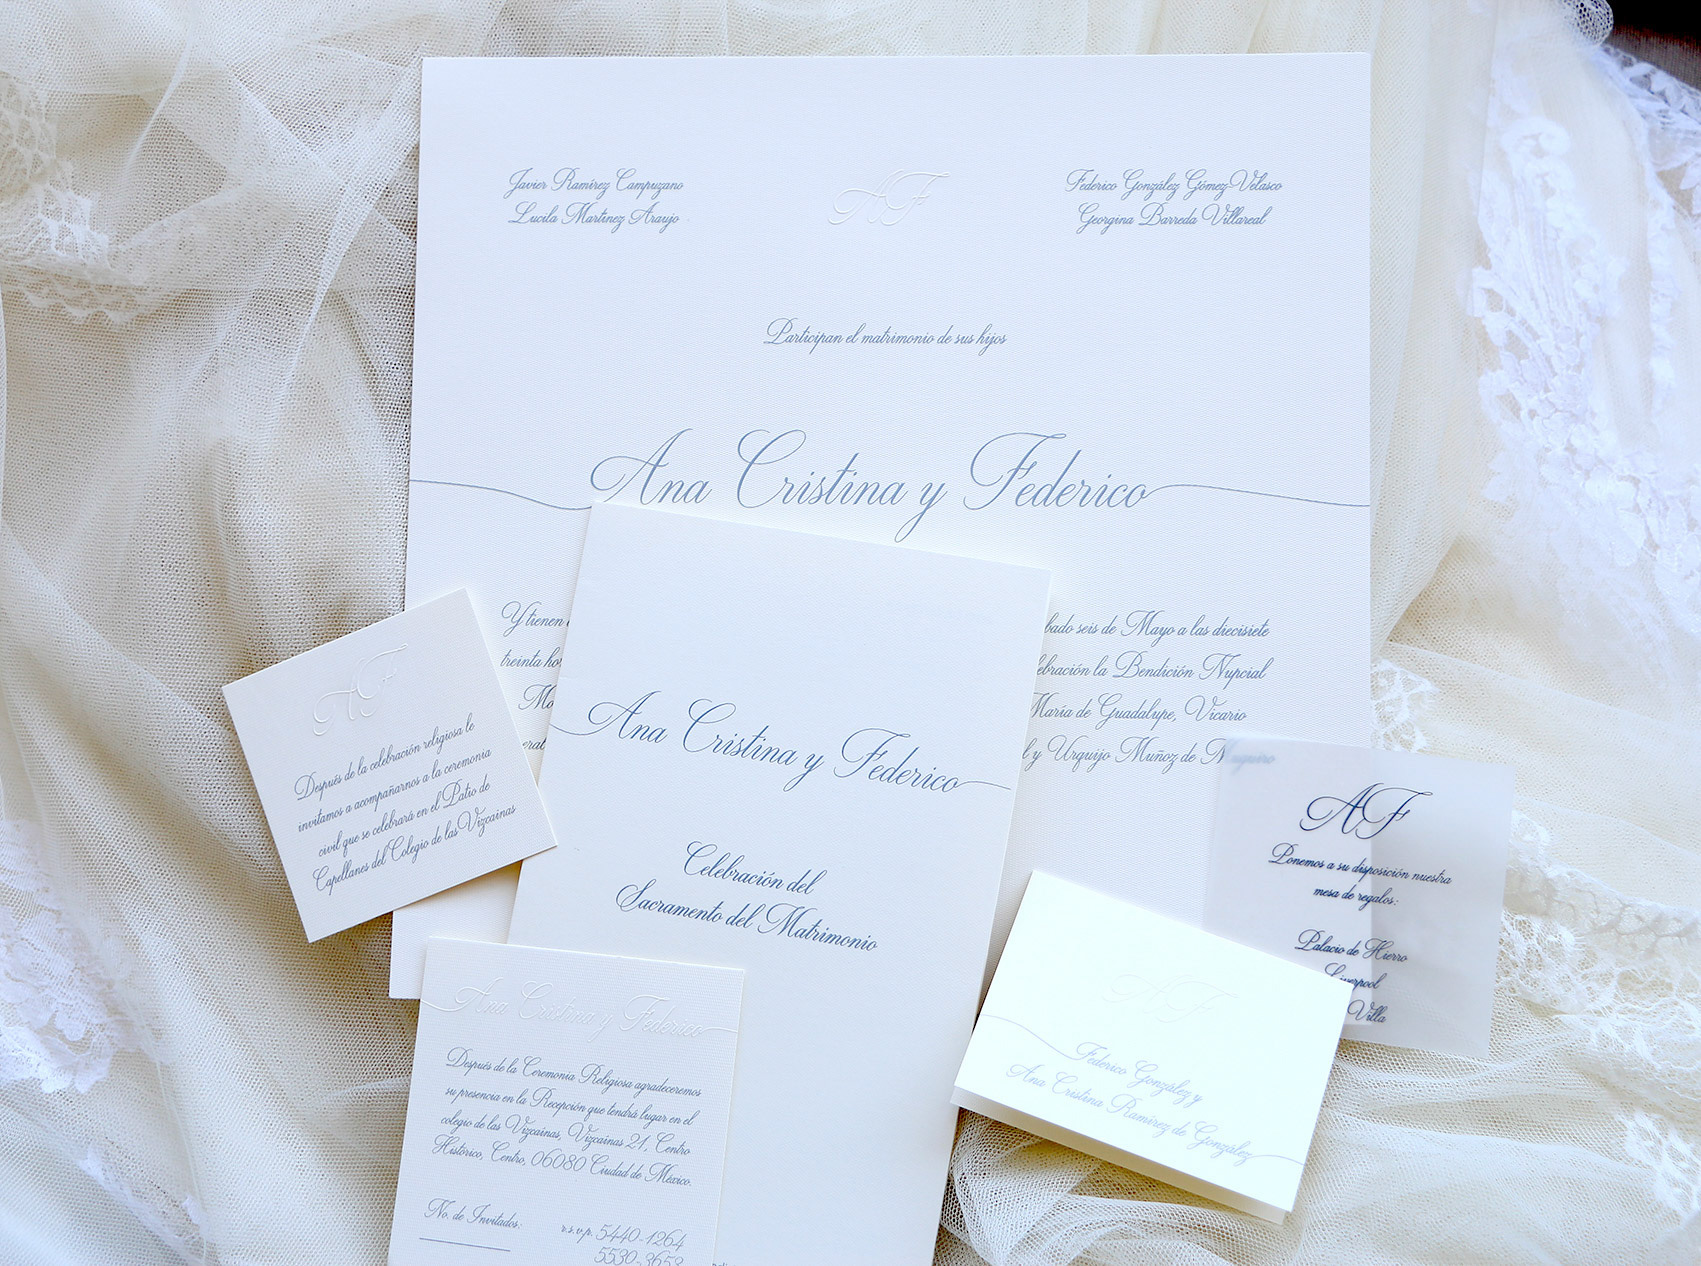 Javier Ramírez Campuzano
Lucila Martinez Araujo
AF
Federico González Gómez-Velasco
Georgina Barreda Villareal
Participan el matrimonio de sus hijos
Ana Cristina y Federico
Y tienen
treinta
seis de Mayo a las diecisiete
la Bendición Nupcial
María de Guadalupe, Vicario
y Urquijo Muñoz de
AF
Después de la celebración religiosa le
invitamos a acompañarnos a la ceremonia
civil que se celebrará en el Patio de
Capellanes del Colegio de las Vizcainas
Ana Cristina y Federico
Celebración del
Sacramento del Matrimonio
Ana Cristina y Federico
Después de la Ceremonia Religiosa agradeceremos
su presencia en la Recepción que tendrá lugar en el
colegio de las Vizcainas, Vizcainas 21, Centro
Histórico, Centro, 06080 Ciudad de México.
No. de Invitados:
r.s.v.p. 5440-1264
5530-3653
AF
Ponemos a su disposición nuestra
mesa de regalos:
Palacio de Hierro
Liverpool
Villa
AF
Federico González y
Ana Cristina Ramírez de González